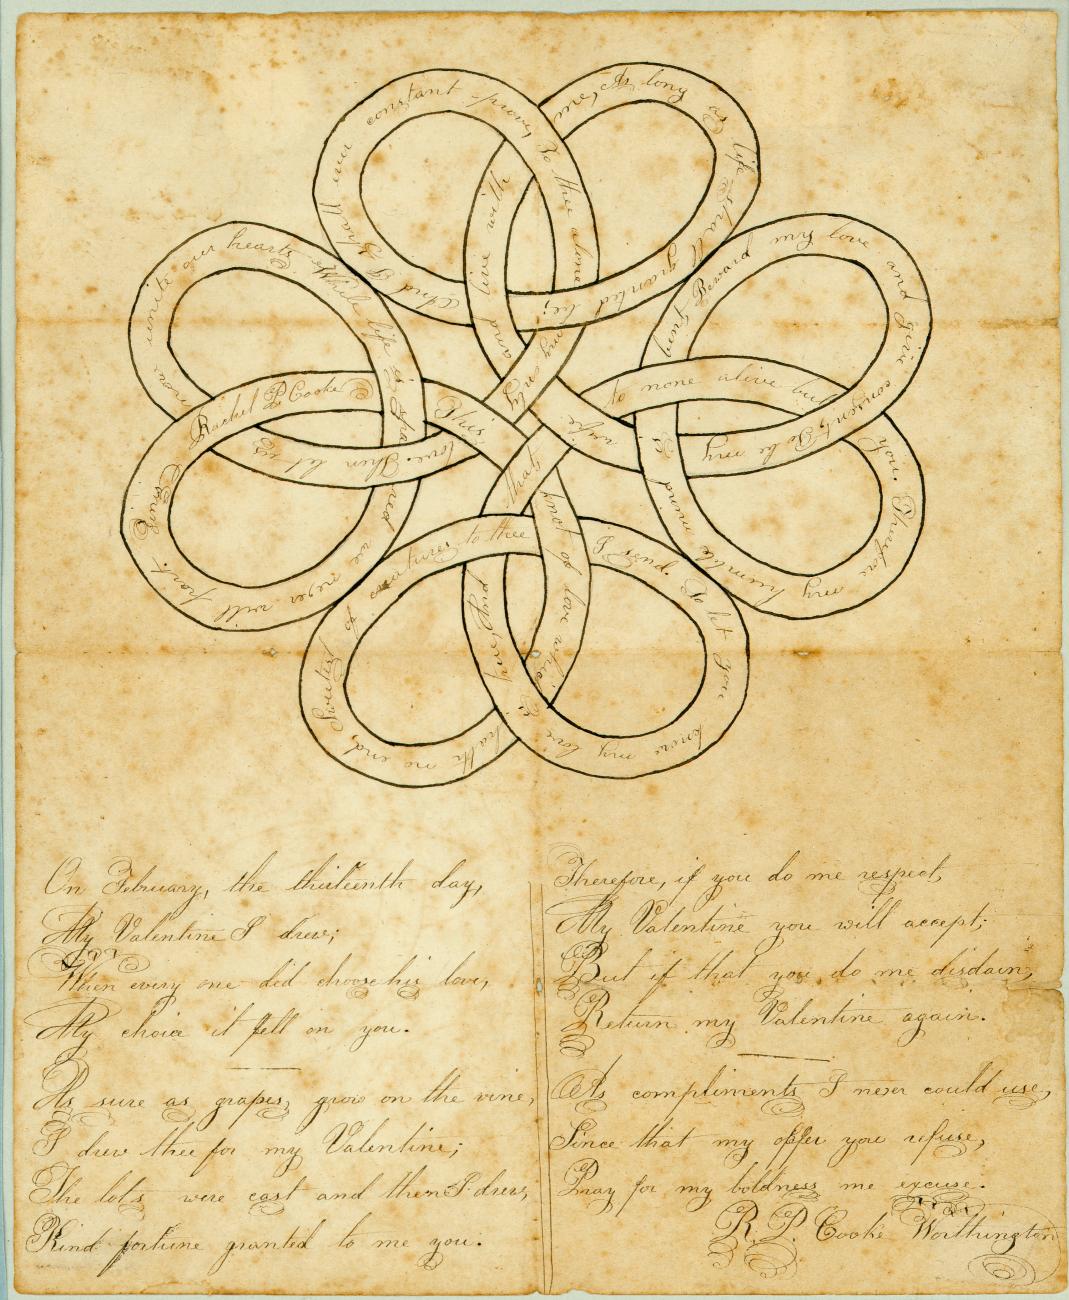 Rachel P Cooke
This
knot of love which
hath no end, Sweetest
to thee
To let you know my love
to none alive but you. Therefore my humble mind is
my love and give consent, To be my wife
and live with thee, As long as life shall granted be;
And I shall ever constant prove, To thee alone my only love. Then let us now unite our hearts, While life is spared we never will part.
On February, the thirteenth day,
My Valentine I drew;
When every one did choose his love,
My choice it fell on you.
As sure as grapes grow on the vine,
I drew thee for my Valentine;
The lots were cast and then I drew,
Kind fortune granted to me you.
Therefore, if you do me respect,
My Valentine you will accept;
But if that you do me disdain,
Return my Valentine again.
As compliments I never could use,
Since that my offer you refuse,
Pray for my boldness me excuse.
R. P. Cooke Worthington